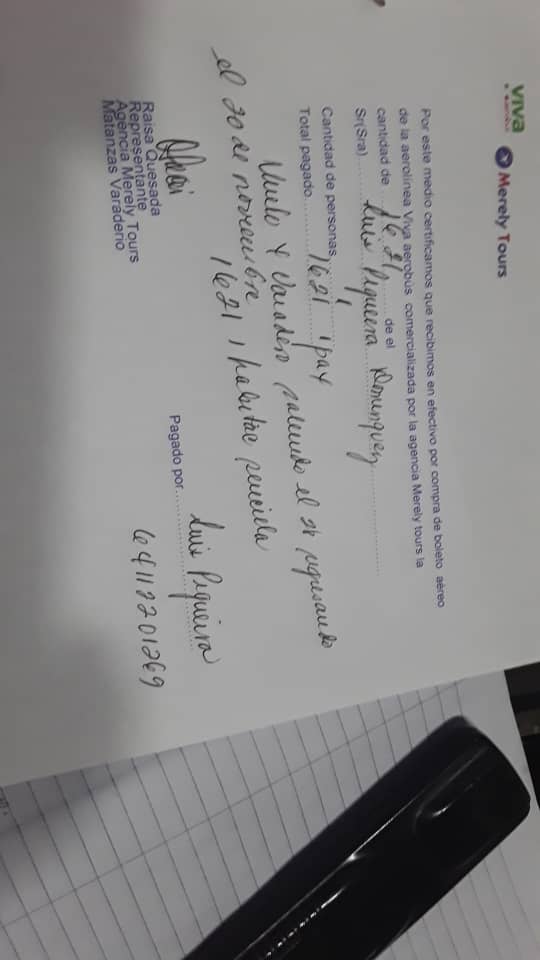 viva
aerobus
Merely Tours
Por este medio certificamos que recibimos en efectivo por compra de boleto aéreo
de la aerolínea Viva aerobús comercializada por la agencia Merely tours la
cantidad de 1621 de el
Sr(Sra) Luis Piqueira Dominguez
Cantidad de personas 1 pax
Total pagado 1621
Vuelo y Varadero saliendo el 26 regresando
el 30 de noviembre
1621 1 habitac sencilla
Raisa Quesada
Representante
Agencia Merely Tours
Matanzas Varadero
Pagado por Luis Piqueira
64112201269